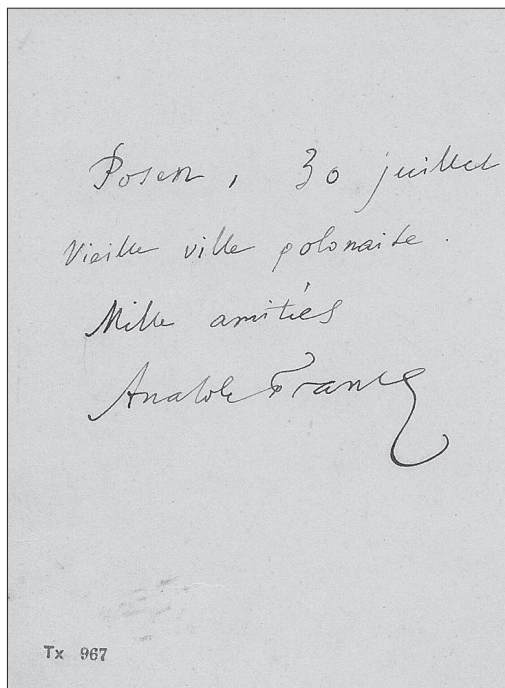 Posen, 30 juillet
Vieille ville polonaise.
Mille amitiés
Anatole France
Tx 967